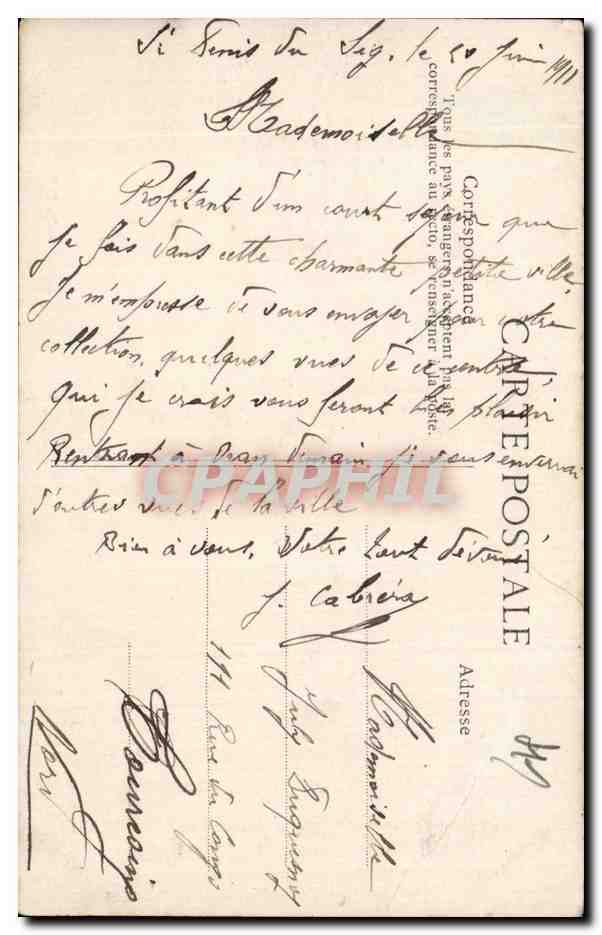 St Denis du Sig, le 20 Juin 1911
Mademoiselle
Profitant d'un court séjour que
je fais dans cette charmante petite ville,
je m'empresse de vous envoyer pour votre
collection, quelques vues de ce centre
qui je crois vous feront plaisir
Rentrant à Oran demain, je vous enverrai
d'autres vues de la ville
Bien à vous, Votre tout dévoué
J. Cabréra
CARTE POSTALE
Correspondance
Tous les pays étrangers n'acceptent pas la
correspondance au recto, se renseigner à la poste.
Adresse
Mademoiselle
Duquesnoy
191 Rue du Congo
Tourcoing
Nord
CPAPHIL